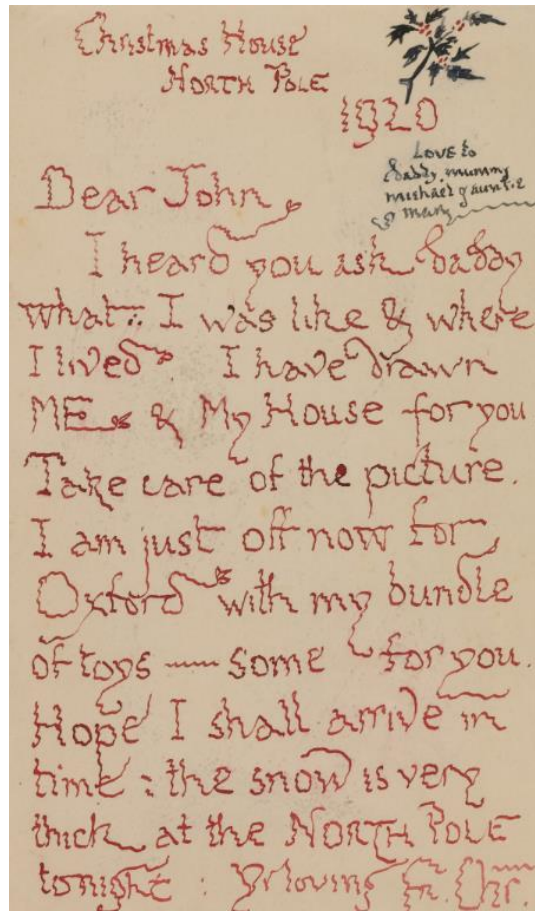 Christmas House
NORTH POLE
1920
LOVE to
daddy, mummy
michael & auntie
mary
Dear John
I heard you ask daddy
what I was like & where
I lived I have drawn
ME & My House for you
Take care of the picture.
I am just off now for
Oxford with my bundle
of toys — some for you.
Hope I shall arrive in
time : the snow is very
thick at the NORTH POLE
tonight : Yr loving Fr. Chr.